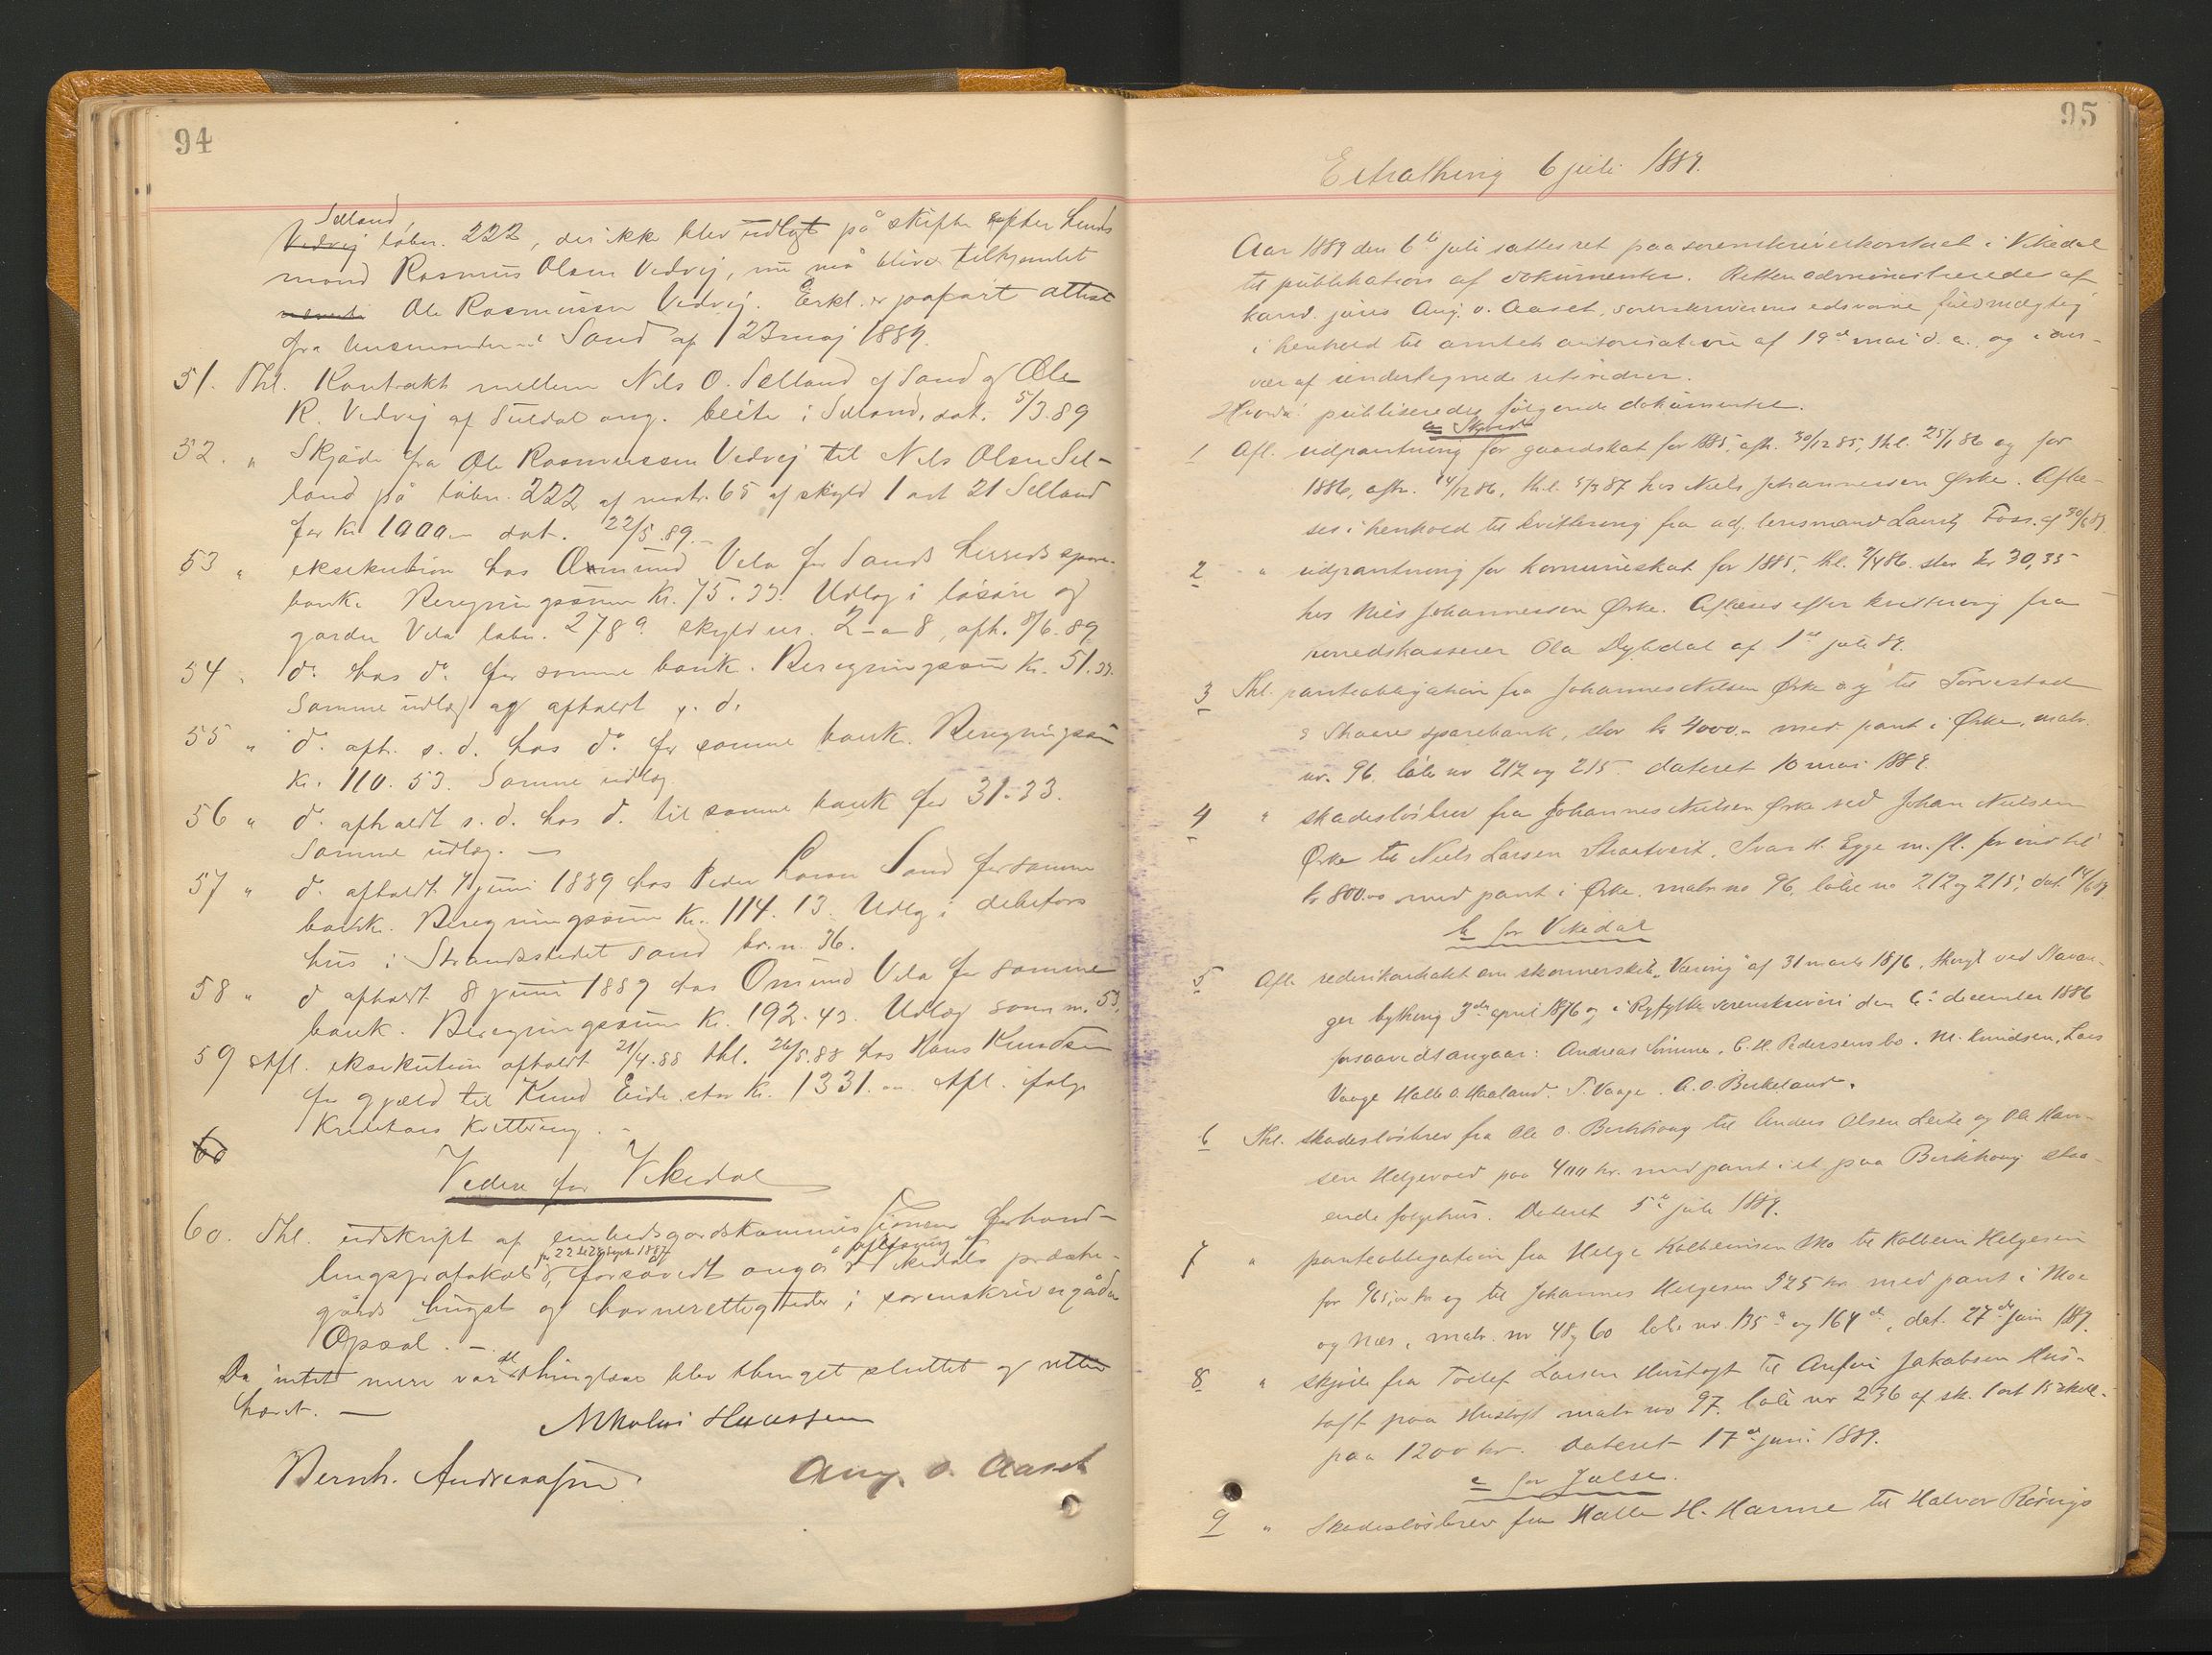 94
Selland
Vedvej løbnr. 222, der ikke blev udlagt på skiftet efter Lends
mand Rasmus Olsen Vedvej, nu må blive tilhjemlet
Ole Rasmussen Vedvej. Erkl. er påført attest
fra Lensmanden i Sand af 23 maj 1889.
51. Thl. Kontrakt mellem Nils O. Selland af Sand og Ole
R. Vedvej af Suldal ang. beite i Selland, dat. 5/3.89
52. " Skjøde fra Ole Rasmussen Vedvej til Nils Olsen Sel-
land på løbnr. 222 af matr. 65 af skyld 1 ort 21 Selland
for kr 1000.- dat. 22/5.89.-
53 " eksekution hos Osmund Vela for Sands herreds spare-
bank. Beregningssum kr. 75.33. Udlæg i løsøre og
gården Vela løbnr. 278a skyld nr. 2-a-8, afh. 8/6.89
54 " do hos do for samme bank. Beregningssum kr. 51.33.
Samme udlæg og afholdt s. d.
55 " do afh. s. d. hos do for samme bank. Beregningssum
kr. 110.53. Samme udlæg
56 " do afholdt s. d. hos d. til samme bank for 31.33.
Samme udlæg. —
57 " do afholdt 7 juni 1889 hos Peder Larsen Sand for samme
bank. Beregningssum kr. 114.13. Udlæg i debitors
hus i Strandstedet Sand br. n. 36.
58 " d afholdt 8 juni 1889 hos Osmund Vela for samme
bank. Beregningssum kr. 192.43. Udlæg som n. 53.
59 Afl. eksekution afholdt 21/4.88 thl. 26/5.88 hos Hans Knudsen
for gjæld til Knud Eide stor kr. 1331.- Afl. ifølge
kreditors kvittering. -
60
Videre for Vikedal
60. Thl. udskrift af embedsgårdskommissionens forhand-
for 22 til 28 Septr 1887 afløsning af
lingsprotokol, forsåvidt angår Vikedals præste-
gårds hugst og havnerettigheder i sorenskrivergården
Opsal. -
Da intet mere var til thinglæs. blev thinget sluttet og retten
hævet. —
Nikolai Hanssen
Bernh. Andreassen
Aug. o. Aaset
95
Extrathing 6 juli 1889.
Aar 1889 den 6te juli sattes ret paa sorenskriverkontoret i Vikedal
til publikation af dokumenter. Retten administreredes af
kand. juris Aug. o. Aaset, sorenskriverens edsvorne fuldmægtig
i henhold til amtets autorisation af 19de mai d. a. og i over-
vær af undertegnede retsvidner.
Hvorda publiseredes følgende dokumenter.
a Skjold
1 Afl. udpantning for gaardskat for 1885, afh. 30/12 85, thl. 25/1 86 og for
1886, afh. 14/12 86, thl. 5/3 87 hos Niels Johannessen Ørke. Aflæ-
ses i henhold til kvittering fra adj. lensmand Lauritz Foss. af 30/6 89.
2 " udpantning for kommuneskat for 1885, thl. 7/4 86. stor kr 30,35
hos Niels Johannessen Ørke. Aflæses efter kvittering fra
herredskasserer Ola Dybdal af 1ste juli 89.
3 Thl. panteobligation fra Johannes Nilsen Ørke og til Torvestad
& Skaare sparebank, stor kr 4000.- med pant i Ørke, matr.
nr. 96, løbe nr 212 og 215. dateret 10 mai 1889.
4 " skadesløsbrev fra Johannes Nielsen Ørke ved Johan Nielsen
Ørke til Niels Larsen Straatveit, Ivar H. Egge m. fl. for indtil
kr 800.00 med pant i Ørke. matr no 96, løbe no 212 og 215; dat 14/6 89.
b for Vikedal
5 Afl. rederikontrakt om skonnerskib "Væring" af 31 marts 1876, thingl. ved Stavan-
ger bything 3die april 1876 og i Ryfylke sorenskriveri den 6te december 1886
forsaavidt angaar: Andreas Simonsen, C. H. Pedersens bo. M. Knudsen, Lars
Vaage Halle O. Haaland. T. Vaage. A. O. Birkeland.
6 Thl. skadesløsbrev fra Ole O. Birkhoug til Anders Olsen Leite og Ole Han-
sen Helgevold paa 400 kr. med pant i et paa Birkhoug staa-
ende følgehus. Dateret 5te juli 1889.
7 " panteobligation fra Helge Kolbeinsen Mo til Kolbein Helgesen
for 965,00 kr og til Johannes Helgesen 325 kr med pant i Moe
og Næs, matr. nr 48 og 60 løbe nr. 135a og 164d, dat. 27de juni 1889.
8 " skjøde fra Tollef Larsen Hustoft til Anfin Jakobsen Hus-
toft paa Hustoft matr no 97. løbe nr 236 af sk. 1 ort 15 skill.
paa 1200 kr. Dateret 17de juni 1889.
c for Jælse.
9 " Skadesløsbrev fra Halle H. Hamre til Halvor Rørings